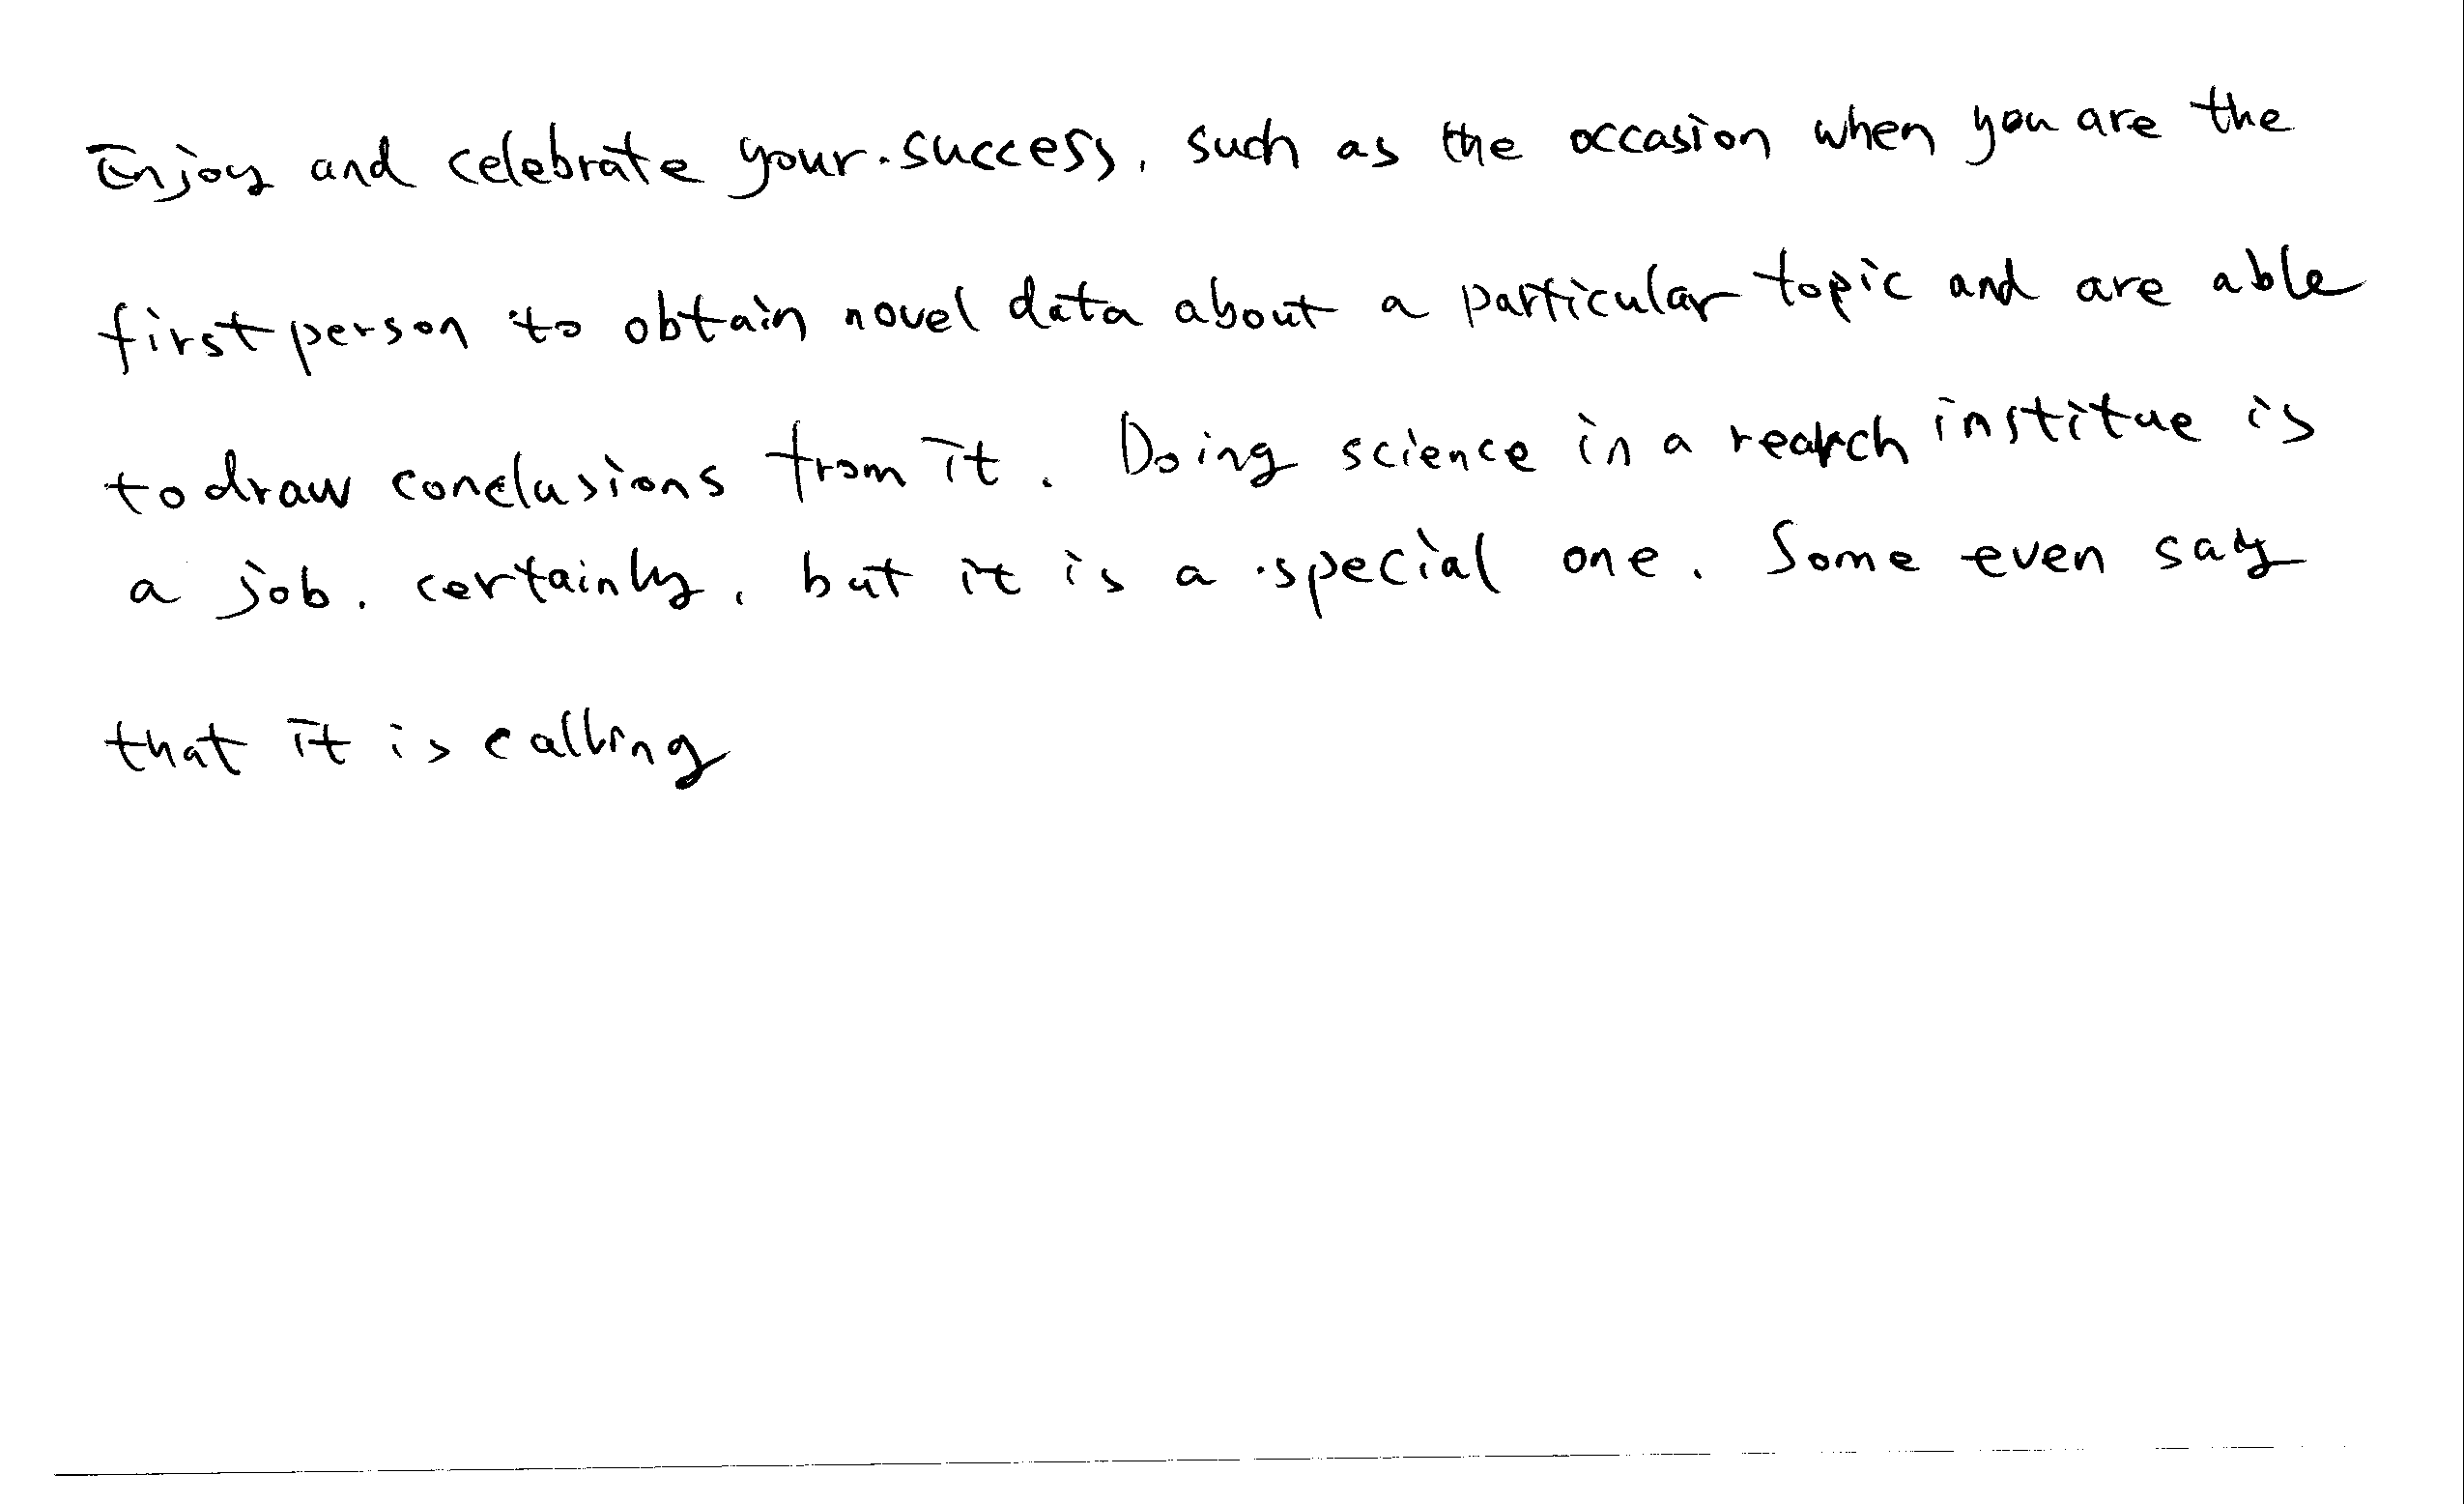 Enjoy and celebrate your success, such as the occasion when you are the
first person to obtain novel data about a particular topic and are able
to draw conclusions from it. Doing science in a rearch institue is
a job, certainly, but it is a special one. Some even say
that it is calling